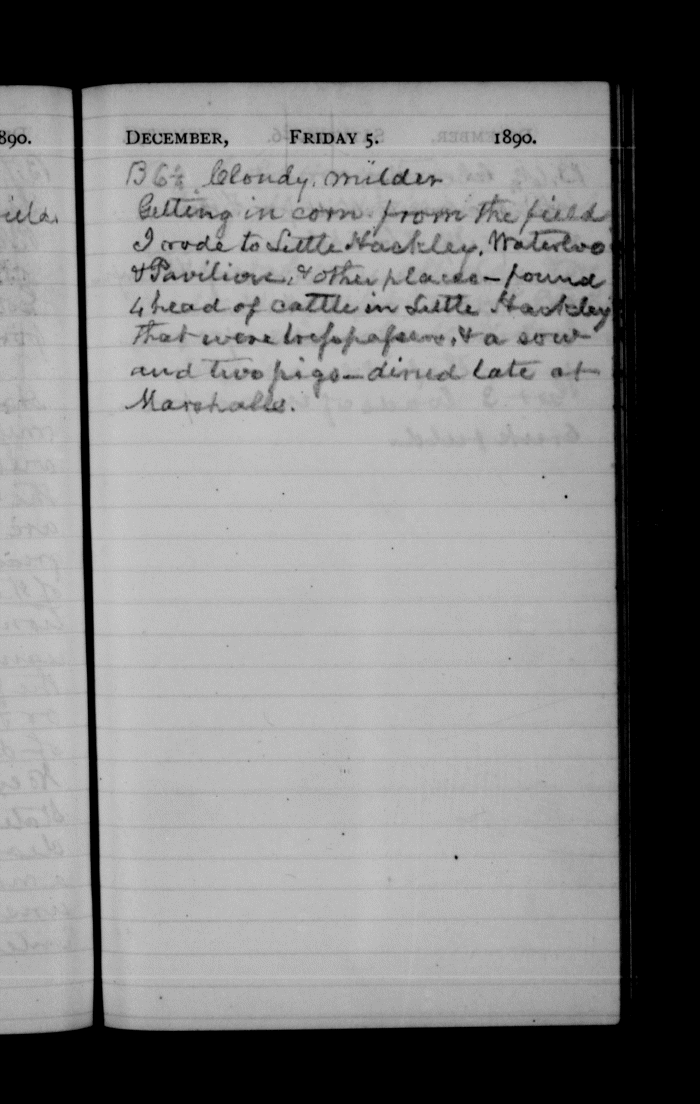 890.
DECEMBER, FRIDAY 5. 1890.
B 6½ Cloudy, milder
field.
Getting in corn from the field
I rode to Little Hackley, Waterloo
& Pavilion, & other places – found
4 head of cattle in Little Hackley
that were tresspassers, & a sow
and two pigs – dined late at
Marshalls.